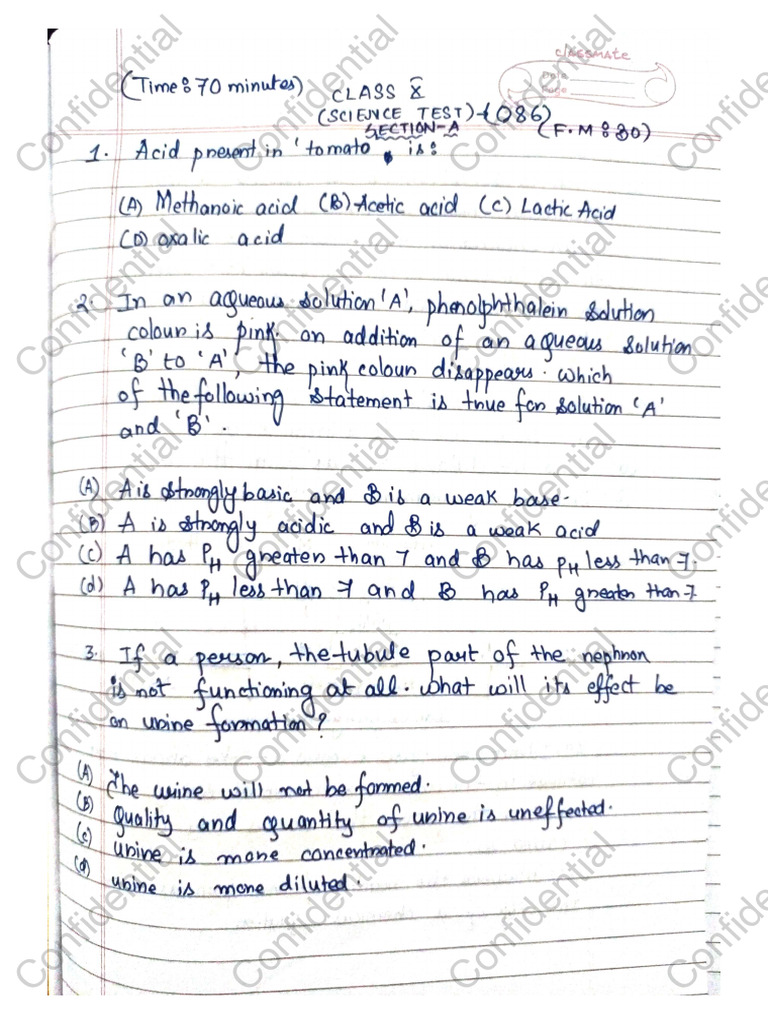 classmate
Date
Page
(Time: 70 minutes)
CLASS X
(SCIENCE TEST)-(086)
SECTION-A
(F.M: 80)
1. Acid present in 'tomato , is:
(A) Methanoic acid (B) Acetic acid (C) Lactic Acid
(D) oxalic acid
2. In an aqueous solution 'A', phenolphthalein solution
colour is pink. on addition of an aqueous solution
'B' to 'A', the pink colour disappears. which
of the following statement is true for solution 'A'
and 'B'.
(A) A is strongly basic and B is a weak base.
(B) A is strongly acidic and B is a weak acid
(C) A has PH greater than 7 and B has PH less than 7.
(d) A has PH less than 7 and B has PH greater than 7
3. If a person, the tubule part of the nephron
is not functioning at all. what will its effect be
on urine formation?
(A) The urine will not be formed.
(B) Quality and quantity of urine is uneffected.
(c) urine is more concentrated.
(d) urine is more diluted.
Confidential